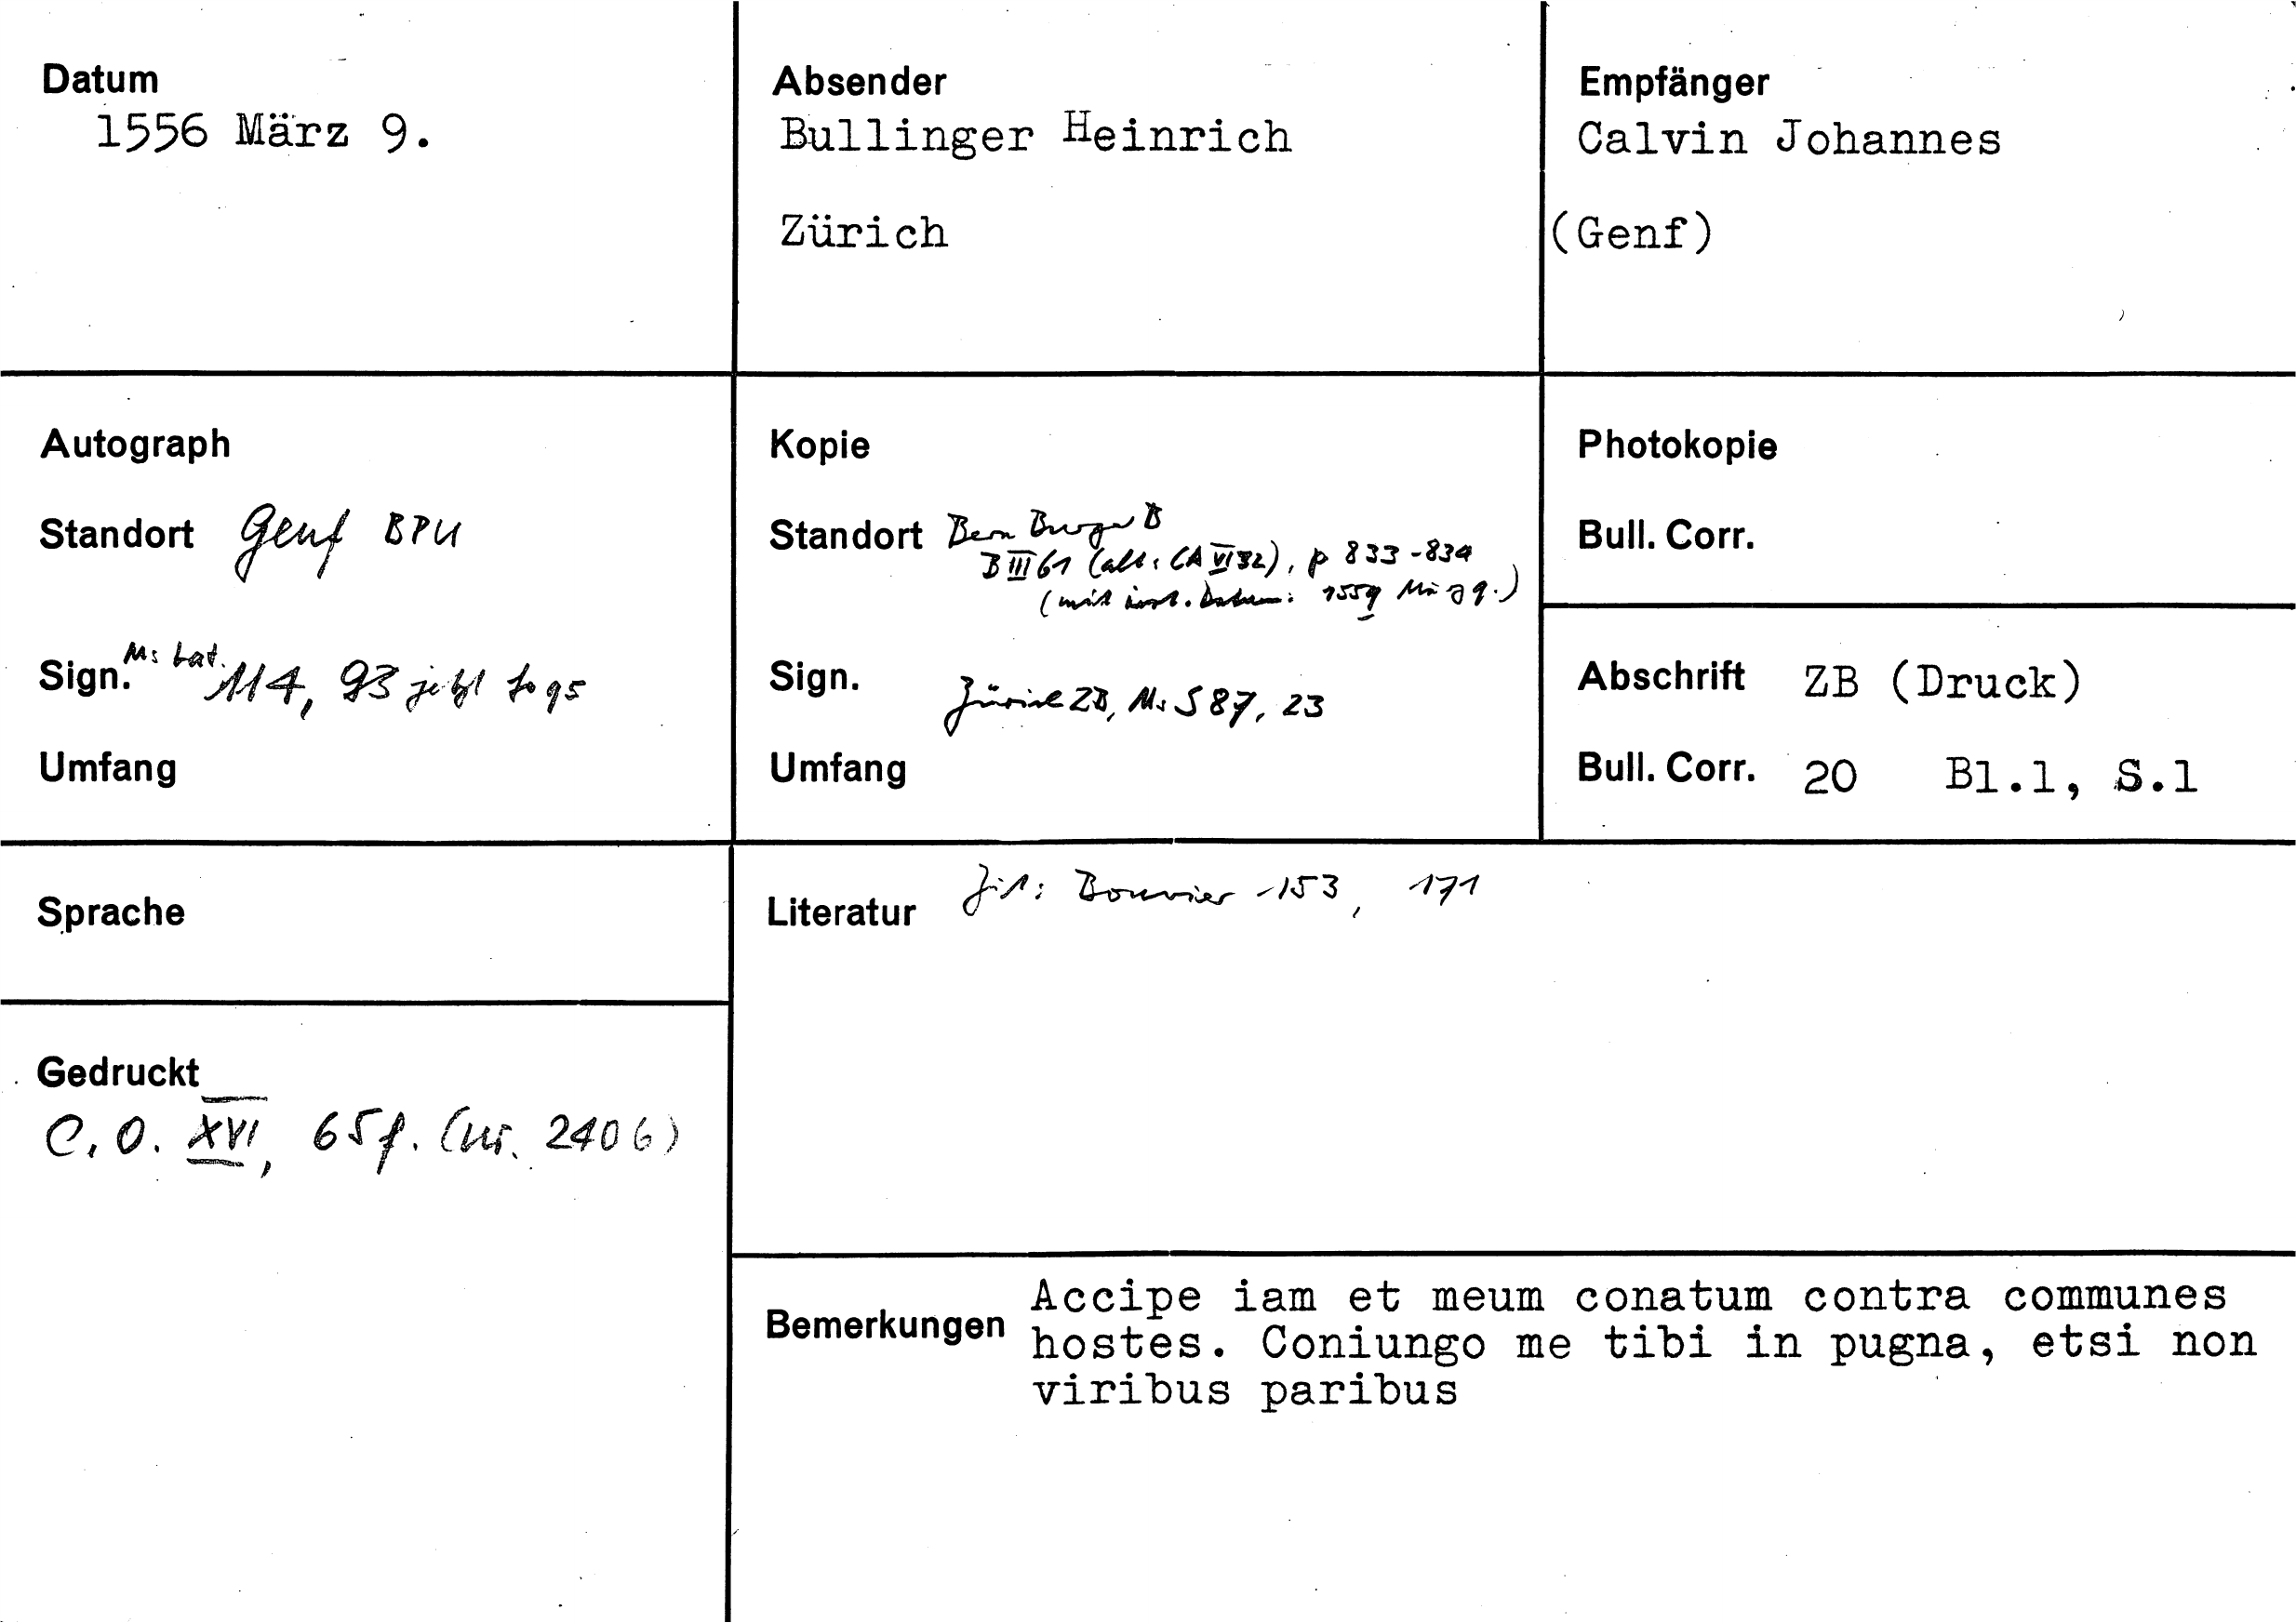 Datum
1556 März 9.
Absender
Bullinger Heinrich
Zürich
Empfänger
Calvin Johannes
(Genf)
Autograph
Standort Genf BPU
Sign. Ms Lat. 114, 93 jetzt fo 95
Umfang
Kopie
Standort Bern Burger B
B III 61 (alt: CA VI 32), p 833-834
(mit irrt. Datum: 1559 März 9.)
Sign. Zürich ZB, Ms S 87, 23
Umfang
Photokopie
Bull. Corr.
Abschrift ZB (Druck)
Bull. Corr. 20 Bl.1, S.1
Sprache
Literatur Zit: Bouvier 153, 171
Gedruckt
C. O. XVI, 65f. (Nr. 2406)
Bemerkungen
Accipe iam et meum conatum contra communes
hostes. Coniungo me tibi in pugna, etsi non
viribus paribus